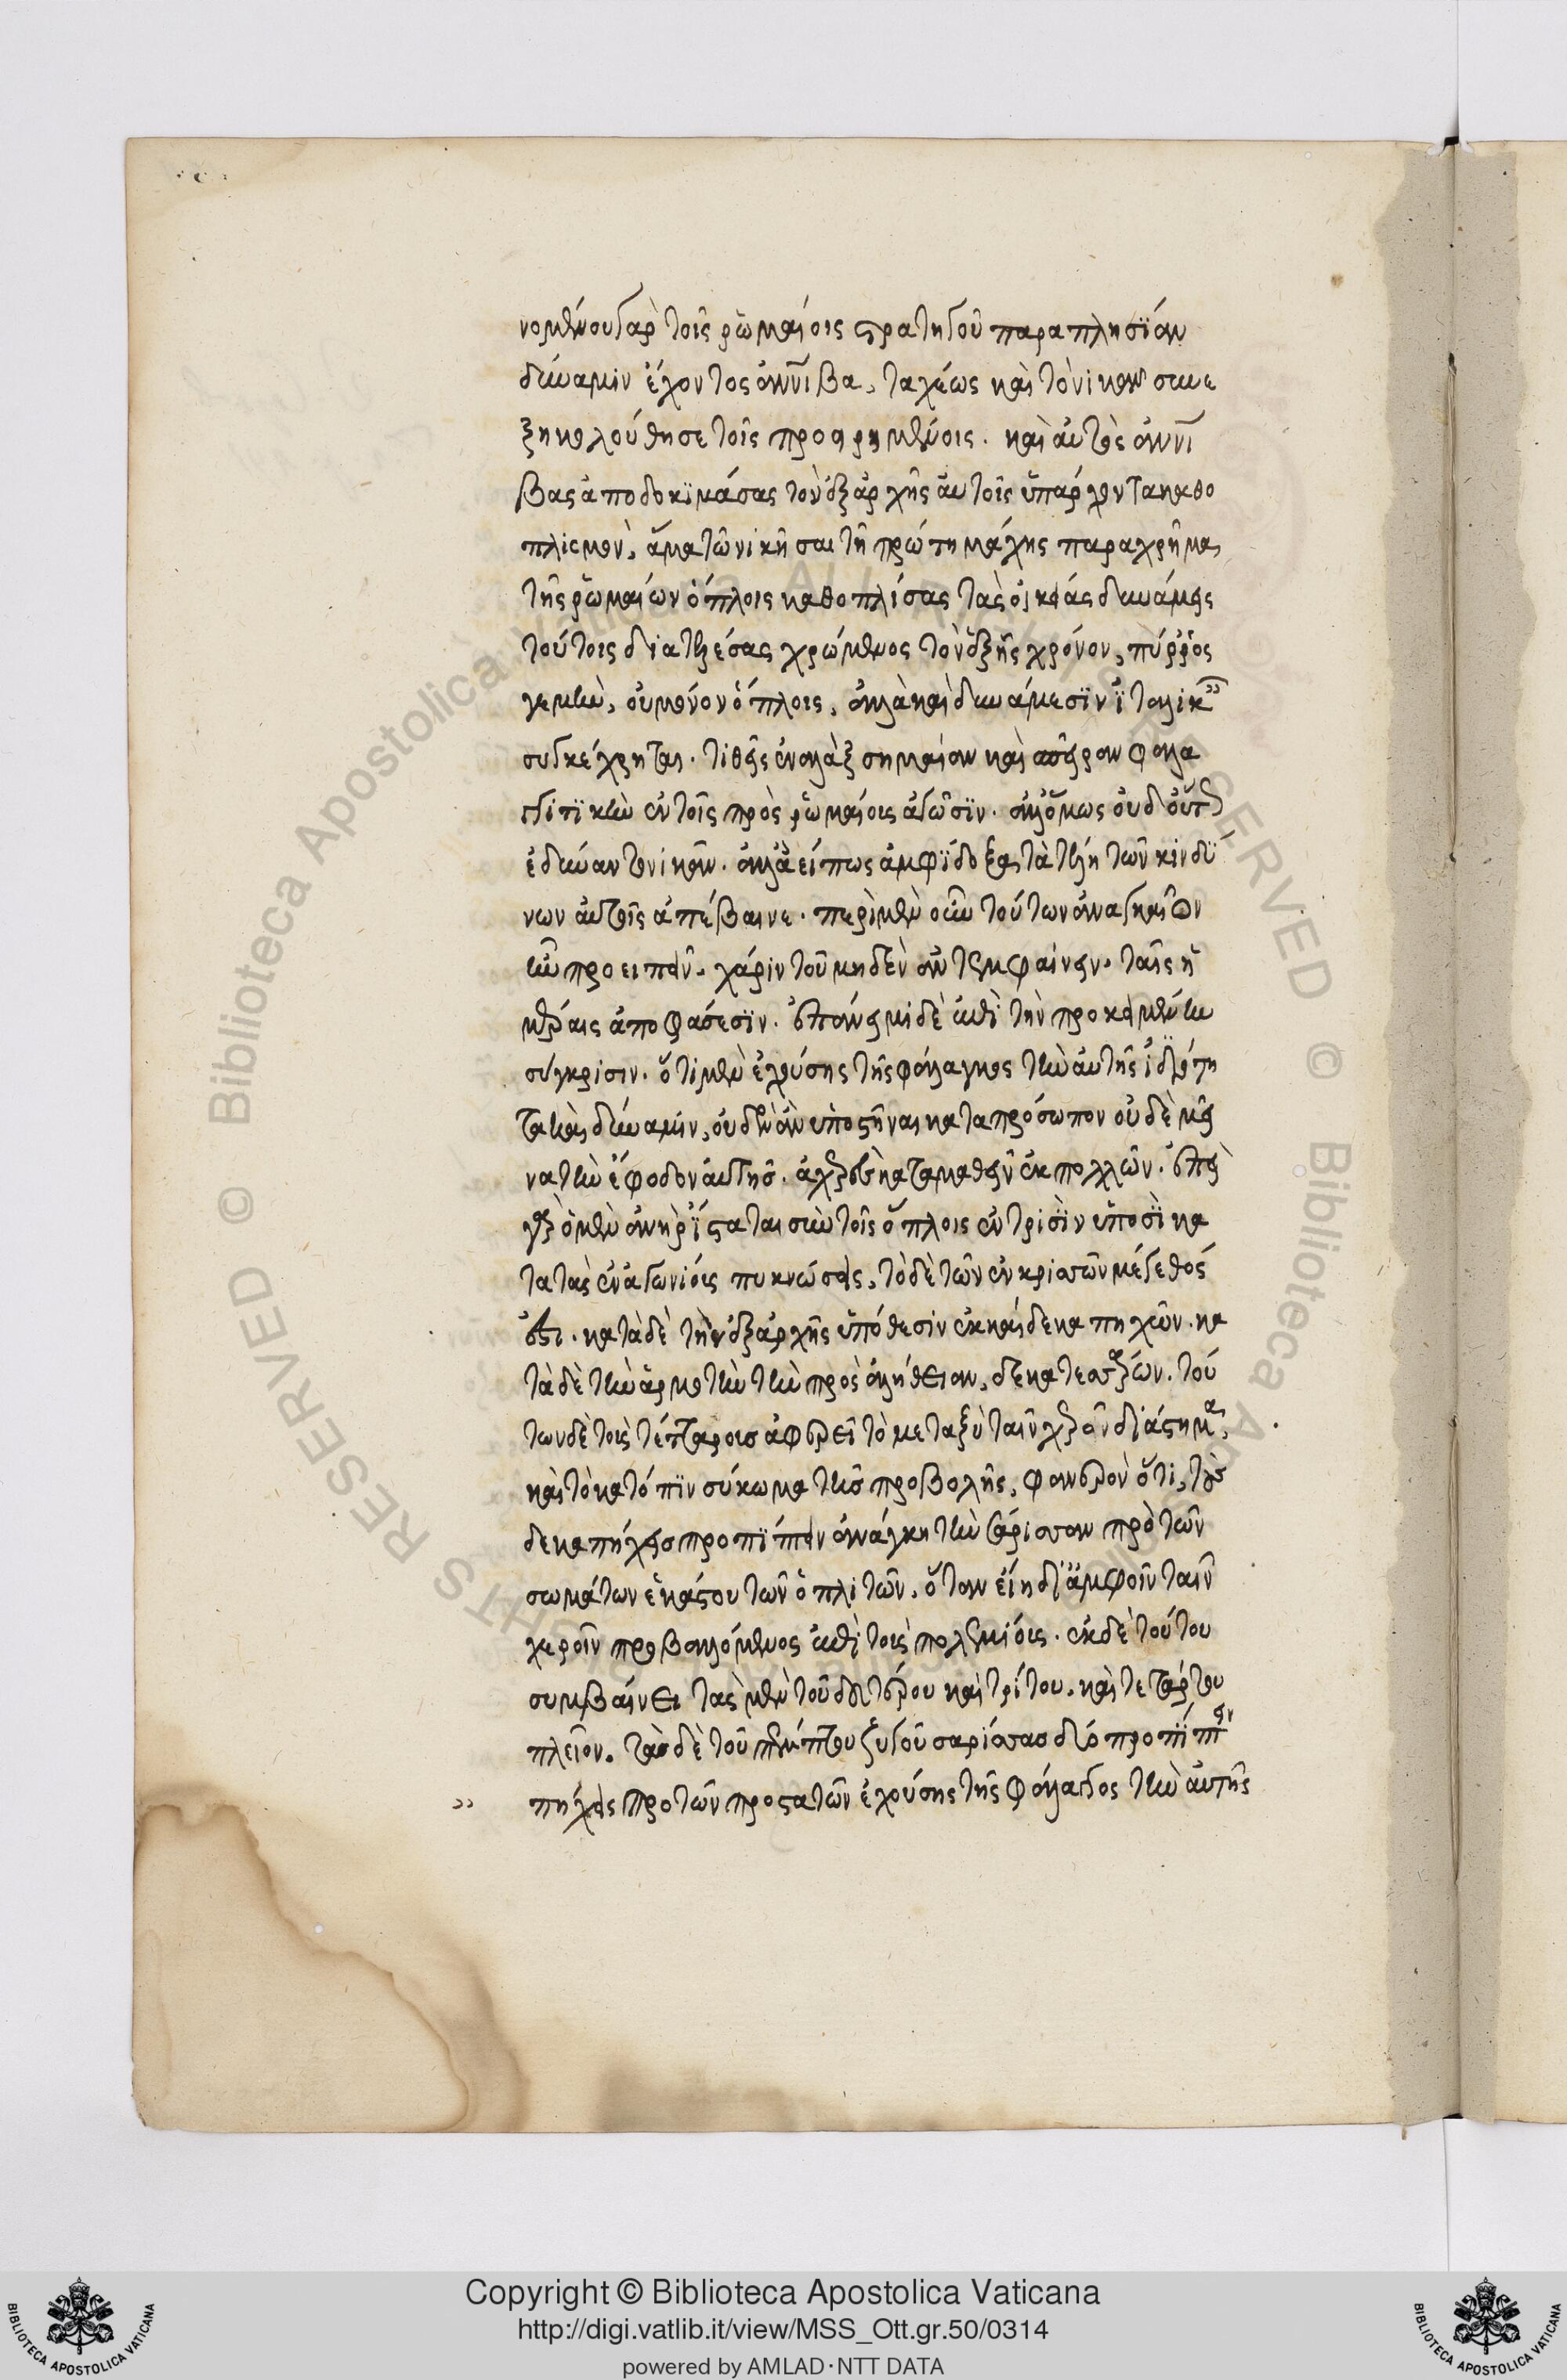 νομένου γὰρ τοῖς ῥωμαίοις στρατηγοῦ παραπλησίαν
δύναμιν ἔχοντος ἀννίβα, ταχέως καὶ τὸ νικᾶν συνε
ξηκολούθησε τοῖς προειρημένοις. καὶ αὐτὸς ἀννί
βας ἀποδοκιμάσας τὸν ἐξ ἀρχῆς αὐτοῖς ὑπάρχοντα καθο
πλισμὸν, ἅμα τῷ νικῆσαι τῇ πρώτη μάχης παραχρῆμα
τῆς ῥωμαίων ὅπλοις καθοπλίσας τὰς οἰκείας δυνάμεις
τούτοις διετέλεσας χρώμενος τὸν ἑξῆς χρόνον, πύρρος
γε μὴν, οὐ μόνον ὅπλοις, ἀλλὰ καὶ δυνάμεσιν ἰταλικ
συγκέχρηται. τιθεὶς ἐναλὰξ σημαίαν καὶ σπεῖραν φαλα
γγιτικὴν ἐν τοῖς πρὸς ῥωμαίοις ἀγῶσιν. ἀλλ' ὅμως οὐδ' οὕτω
ἐδύναντο νικᾶν. ἀλλὰ εἴπως ἀμφίδοξα τὰ τέλη τῶν κινδύ
νων αὐτοῖς ἀπέβαινε. περὶ μὲν οὖν τούτων ἀναγκαῖον
ἦν προειπεῖν. χάριν τοῦ μηδὲν ἀντεμφαίνειν. ταῖς ἡ
μετέραις ἀποφάσεσιν. ἐπάνειμι δὲ ἐπὶ τὴν προκειμένην
σύγκρισιν. ὅτι μὲν ἐχούσης τῆς φάλαγγος τὴν αὐτῆς ἰδιότη
τα καὶ δύναμιν, οὐδὲν ἂν ὑποστῆναι κατα πρόσωπον οὐδὲ μεῖ
να τὴν ἔφοδον αὐτῆς. εὐχερὲς καταμαθεῖν ἐκ πολλῶν. ἐπεὶ
γὰρ ὁ μὲν ἀνὴρ ἵσταται σὺν τοῖς ὅπλοις ἐν τρισὶν ὑποσὶ κα
τὰ τὰς ἐναγωνίοις πυκνώσεις, τὸ δὲ τῶν ἐν κρισσῶν μέγεθός
ἐστι. κατὰ δὲ τὴν ἐξ ἀρχῆς ὑπόθεσιν ἐκκαίδεκα πηχῶν. κα
τὰ δὲ τὴν ἁρμοτὴν τὴν πρὸς ἀλήθειαν, δεκατεσσάρων. τού
των δὲ τοὶς τέτταροισ ἀφαιρεῖ τὸ μεταξὺ ταῖν χεροῖν διάστημα,
καὶ τὸ κατόπιν σύκωμα τῆς προβολῆς, φανερὸν ὅτι, τοὺς
δεκα πήχεις προπίπτειν ἀνάγκη τὴν σάρισσαν πρὸ τῶν
σωμάτων ἑκάστου τῶν ὁπλιτῶν. ὅταν εἴη δι' ἀμφοῖν ταῖν
χεροῖν προβαλλόμενος ἐπὶ τοὶς πολεμίοις. ἐκ δὲ τούτου
συμβαίνει τας μὲν τοῦ δευτέρου καὶ τρίτου. καὶ τετάρτου
πλεῖον. τὰσ δὲ τοῦ πέμπτου ζυγοῦ σαρίσσασ δύο προπίπτειν
πήχεις προ τῶν προστατῶν ἐχούσης τῆς φάλαγγος τὴν αὐτῆς
Copyright © Biblioteca Apostolica Vaticana
http://digi.vatlib.it/view/MSS_Ott.gr.50/0314
powered by AMLAD·NTT DATA